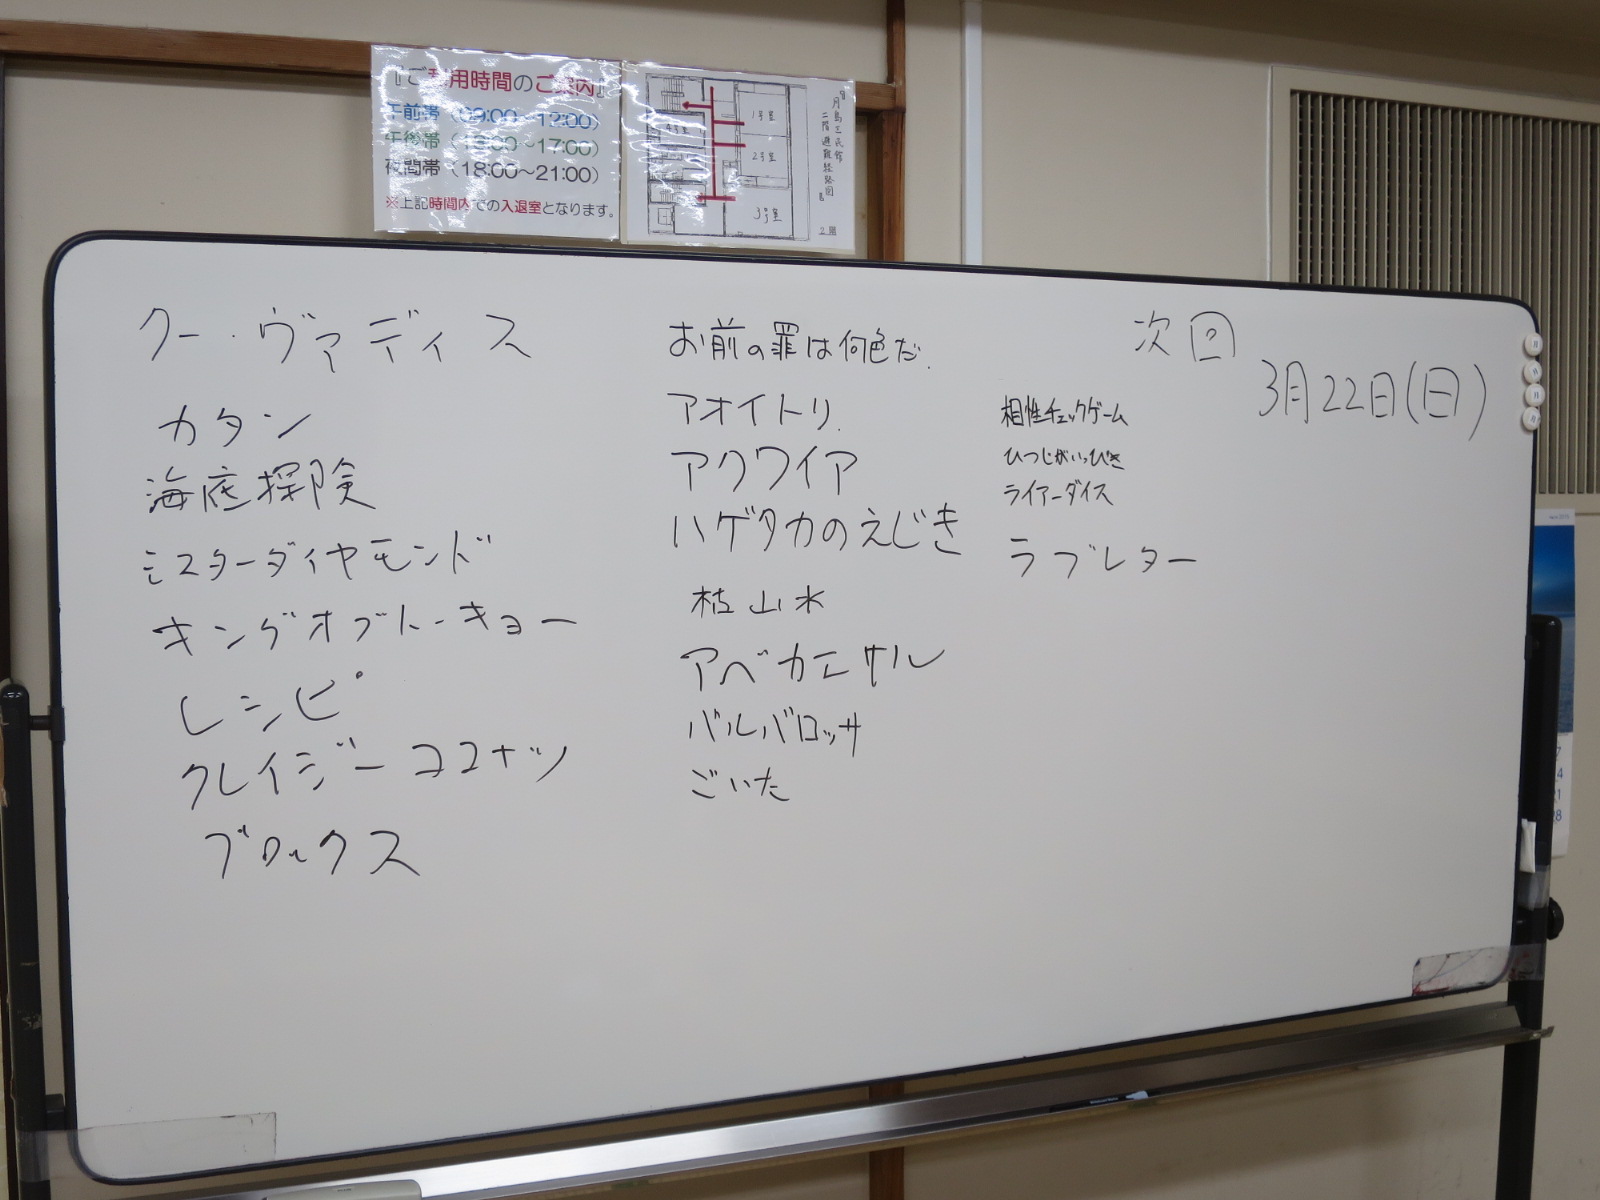 『ご利用時間のご案内』
午前帯（09:00～12:00）
午後帯（13:00～17:00）
夜間帯（18:00～21:00）
※上記時間内での入退室となります。
1号室
2号室
3号室
4号室
月島区民館
二階避難経路図
2階
クー・ヴァディス
カタン
海底探険
ミスターダイヤモンド
キングオブトーキョー
レシピ
クレイジーココナッツ
ブロックス
お前の罪は何色だ.
アオイトリ.
アクワイア
ハゲタカのえじき
枯山水
アベカエサル
バルバロッサ
ごいた
相性チェックゲーム
ひつじがいっぴき
ライアーダイス
ラブレター
次回
3月22日(日)